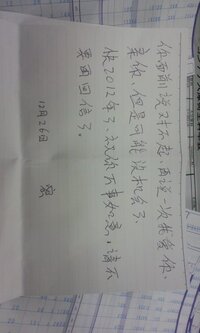 你面前说对不起,再说一次我爱你,
亲你,但是可能没机会了、
快2012年了,祝你万事如意,请不
要再回信了。
12月26日